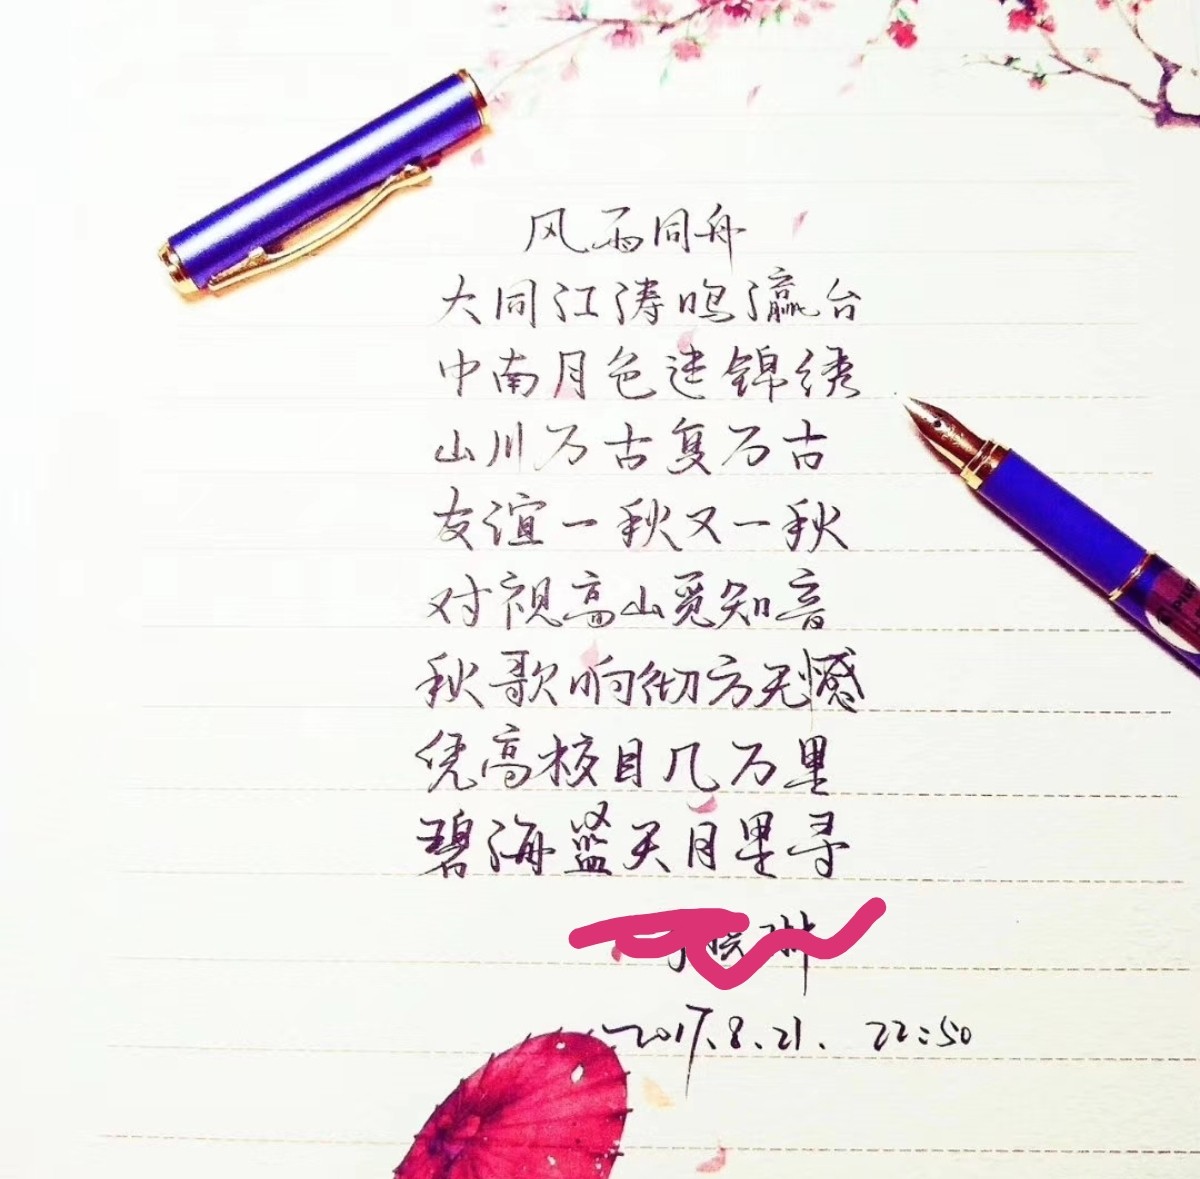 风雨同舟
大同江涛鸣瀛台
中南月色迷锦绣
山川万古复万古
友谊一秋又一秋
对视高山觅知音
秋歌响彻方无憾
凭高极目几万里
碧海蓝天月里寻
2017.8.21. 22:50